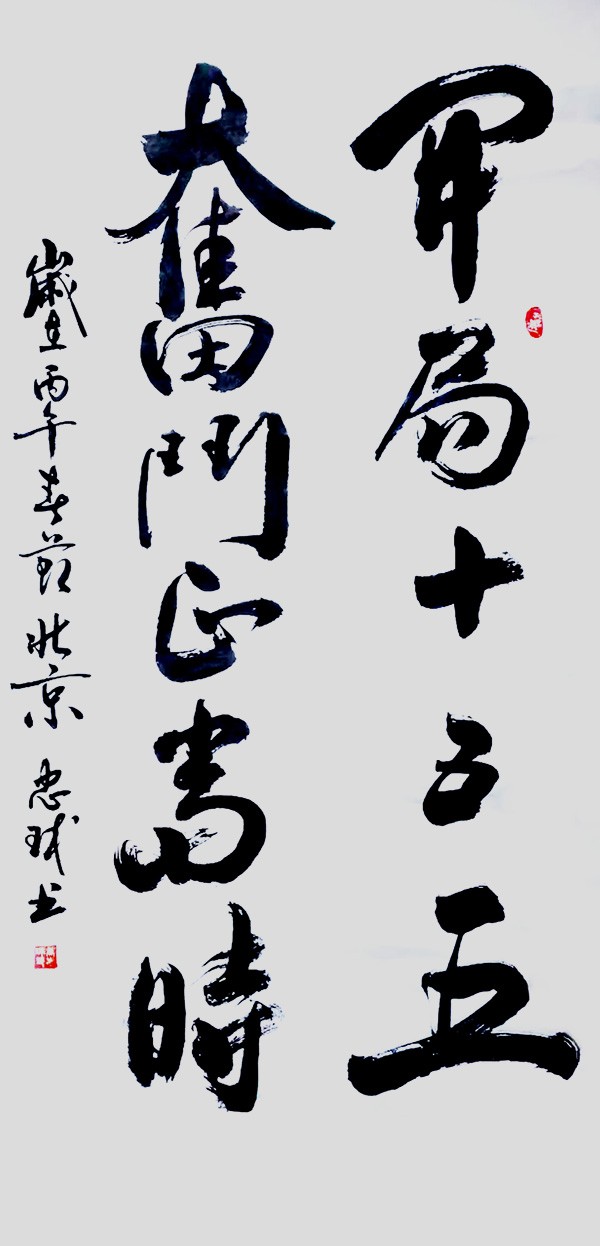 開局十五五
奮鬥正當時
歲在丙午春節北京 忠球书